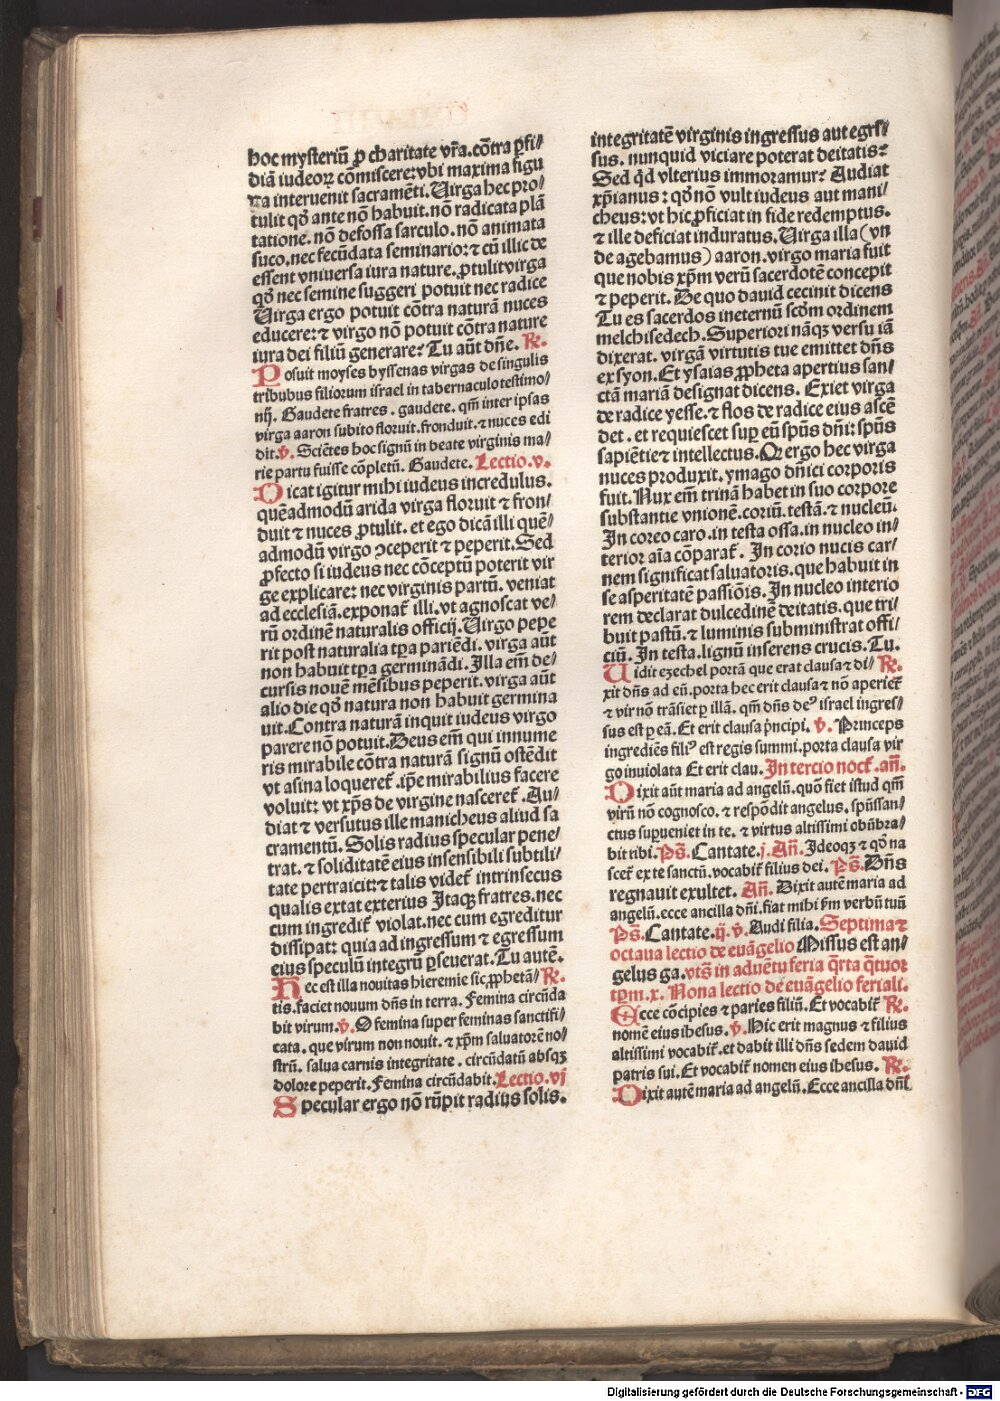 hoc mysteriū ꝓ charitate vr̄a.cōtra ꝑfi/
diā iudeoꝝ cōmiscere:vbi maxima figu
ra interuenit sacramēti.Uirga hec pro/
tulit qȫ ante nō habuit.nō radicata plā
tatione.nō defossa sarculo.nō animata
suco.nec fecūdata seminario:⁊ cū illic de
essent vniuersa iura nature.ꝓtulit virga
qȫ nec semine suggeri potuit nec radice
Uirga ergo potuit cōtra naturā nuces
educere:⁊ virgo nō potuit cōtra nature
iura dei filiū generare? Tu aūt dn̄e. R⁊.
Posuit moyses byssenas virgas de singulis
tribubus filiorum israel in tabernaculo testimo/
nij. Gaudete fratres . gaudete. qm̄ inter ipsas
virga aaron subito floruit.fronduit.⁊ nuces edi
dit.v̄. Sciētes hoc signū in beate virginis ma/
rie partu fuisse cōpletū. Gaudete. Lectio.v.
Dicat igitur mihi iudeus incredulus.
quēadmodū arida virga floruit ⁊ fron/
duit ⁊ nuces ꝓtulit. et ego dicā illi quē/
admodū virgo ꝯceperit ⁊ peperit.Sed
ꝓfecto si iudeus nec cōceptū poterit vir
ge explicare: nec virginis partū. veniat
ad ecclesiā.exponat᷑ illi.vt agnoscat ve/
rū ordinē naturalis officij.Uirgo pepe
rit post naturalia tꝑa pariēdi. virga aūt
non habuit tꝑa germināndi.Illa em̄ de/
cursis nouē mēsibus peperit.virga aūt
alio die qȫ natura non habuit germina
uit.Contra naturā inquit iudeus virgo
parere nō potuit.Deus em̄ qui innume
ris mirabile cōtra naturā signū ostēdit
vt asina loqueret᷑.ip̄e mirabilius facere
voluit: vt xp̄s de virgine nasceret᷑.Au/
diat ⁊ versutus ille manicheus aliud sa
cramentū.Solis radius specular pene/
trat. ⁊ soliditatē eius insensibili subtili/
tate pertraicit:⁊ talis videt᷑ intrinsecus
qualis extat exterius Itaqꝫ fratres.nec
cum ingredit᷑ violat.nec cum egreditur
dissipat: quia ad ingressum ⁊ egressum
eius speculū integrū ꝑseuerat.Tu autē.
Hec est illa nouitas hieremie sic ꝓphetā/ R⁊.
tis.faciet nouum dn̄s in terra. Femina circūda
bit virum.v̄. O femina super feminas sanctifi/
cata. que virum non nouit. ⁊ xp̄m saluatorē no/
strū. salua carnis integritate . circūdatū absqꝫ
dolore peperit.Femina circūdabit.Lectio.vj
Specular ergo nō rūpit radius solis.
integritatē virginis ingressus aut egrs̄/
sus. nunquid viciare poterat deitatis?
Sed qd̄ vlterius immoramur? Audiat
xp̄ianus: qȫ nō vult iudeus aut mani/
cheus:vt hic ꝓficiat in fide redemptus.
⁊ ille deficiat induratus.Uirga illa (vn
de agebamus) aaron.virgo maria fuit
que nobis xp̄m verū sacerdotē concepit
⁊ peperit. De quo dauid cecinit dicens
Tu es sacerdos ineternū scd̄m ordinem
melchisedech.Superiori nāqꝫ versu iā
dixerat. virgā virtutis tue emittet dn̄s
ex syon.Et ysaias ꝓpheta apertius san/
ctā mariā designat dicens. Exiet virga
de radice yesse.⁊ flos de radice eius ascē
det . et requiescet suꝑ eū spūs dn̄i: spūs
sapiētie⁊ intellectus.Qȝ ergo hec virga
nuces produxit. ymago dn̄ici corporis
fuit. Nux em̄ trinā habet in suo corpore
substantie vnionē.coriū.testā.⁊ nucleū.
In coreo caro.in testa ossa.in nucleo in/
terior aīa cōparat᷑. In corio nucis car/
nem significat saluatoris.que habuit in
se asperitatē passiōis.In nucleo interio
rem declarat dulcedinē deitatis.que tri/
buit pastū.⁊ luminis subministrat offi/
ciū.In testa.lignū inserens crucis.Tu.
Uidit ezechel portā que erat clausa⁊ di/ R⁊.
xit dn̄s ad eū.porta hec erit clausa⁊ nō aperiet᷑
⁊ vir nō trāsiet ꝑ illā. qm̄ dn̄s deꝰ israel ingres/
sus est ꝑ eā.Et erit clausa p̄ncipi. v̄. Princeps
ingrediēs filiꝰ est regis summi.porta clausa vir
go inuiolata Et erit clau. In tercio noct᷑.an̄.
Dixit aūt maria ad angelū.quō fiet istud qm̄
virū nō cognosco. ⁊ respōdit angelus. spūssan/
ctus suꝑueniet in te. ⁊ virtus altissimi obūbra/
bit tibi.Ps̄.Cantate.j.An̄.Ideoqꝫ ⁊ qȫ na
scet᷑ ex te sanctū.vocabit᷑ filius dei. Ps̄.Dn̄s
regnauit exultet. An̄. Dixit autē maria ad
angelū.ecce ancilla dn̄i.fiat mihi ẜm verbū tuū
Ps̄.Cantate.ij.v̄.Audi filia.Septima⁊
octaua lectio de euāgelio Missus est an/
gelus ga.vts̄ in aduētu feria q̄rta q̄tuor
tꝑm.x. Nona lectio de euāgelio feriali.
Ecce cōcipies ⁊ paries filiū.Et vocabit᷑ R⁊.
nomē eius ihesus. v̄.Hic erit magnus ⁊ filius
altissimi vocabit᷑.et dabit illi dn̄s sedem dauid
patris sui.Et vocabit᷑ nomen eius ihesus. R⁊.
Dixit autē maria ad angelū.Ecce ancilla dn̄i
Digitalisierung gefördert durch die Deutsche Forschungsgemeinschaft - DFG